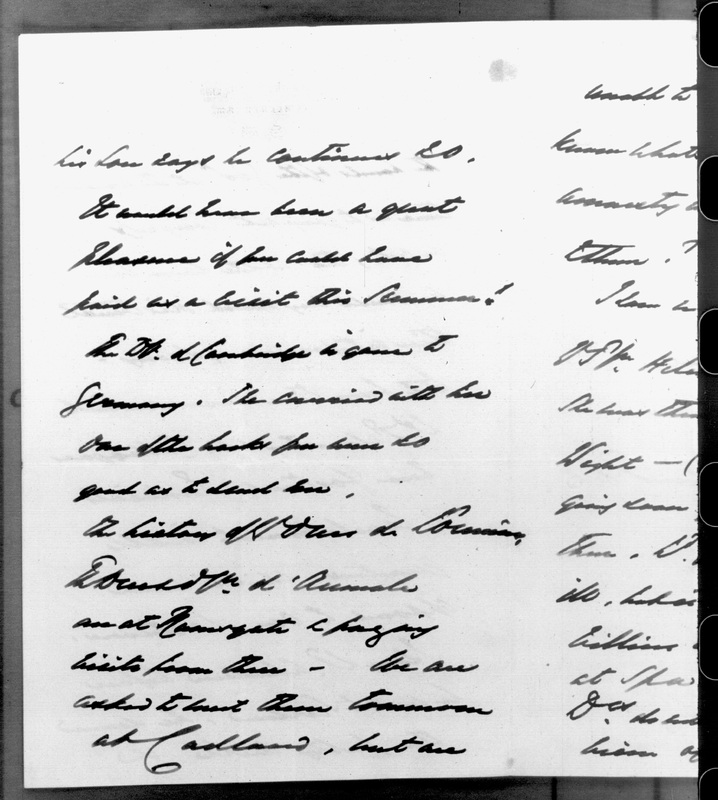 his Son says he continues so.
It would have been a great
pleasure if you could have
paid us a visit this Summer!
The Dss. of Cambridge is gone to
Germany. She carried with her
one of the books you were so
good as to send her,
the history of the Ducs de
The Duc & Dss d'Aumale
are at Ramsgate & paying
visits from there — We are
asked to meet them tomorrow
at Cadland, but are
unable to
know what
anxiety
Ethem?
I saw
She was then
Wight — (
going down
There.
ill, but is
at Spa
Dss. do
him